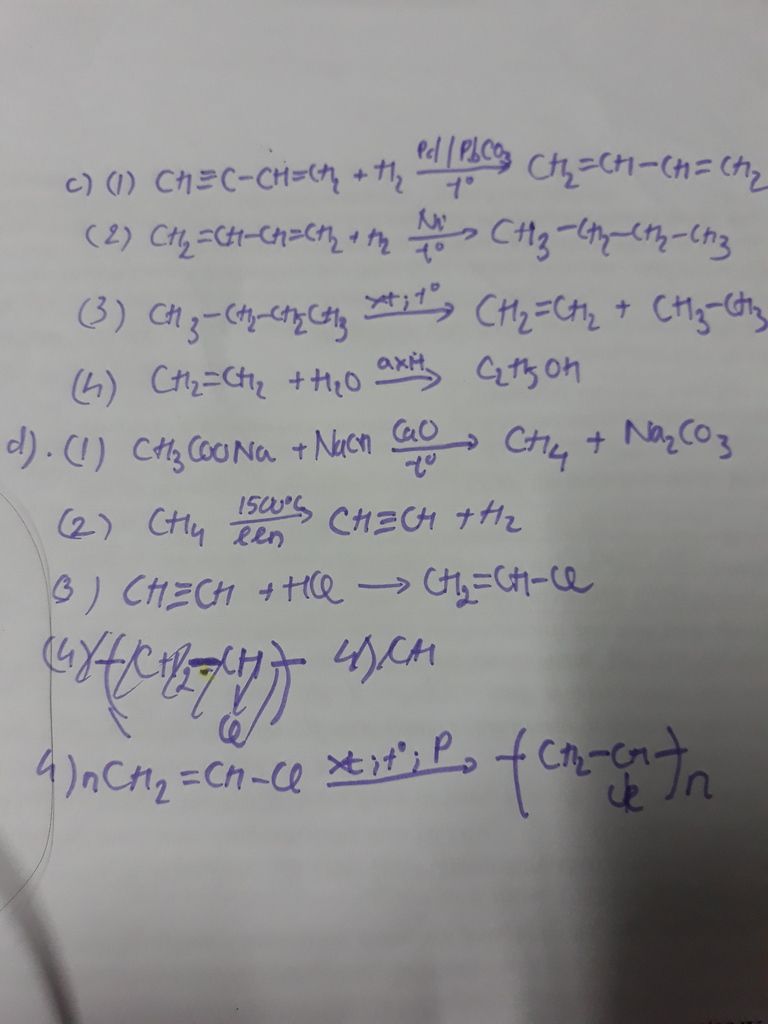 c) (1) CH≡C-CH=CH₂ + H₂ —Pd//PbCO₃, t°→ CH₂=CH-CH=CH₂
(2) CH₂=CH-CH=CH₂ + H₂ —Ni, t°→ CH₃-CH₂-CH₂-CH₃
(3) CH₃-CH₂-CH₂CH₃ —xt; t°→ CH₂=CH₂ + CH₃-CH₃
(4) CH₂=CH₂ + H₂O —axit→ C₂H₅OH
d). (1) CH₃COONa + NaOH —CaO, t°→ CH₄ + Na₂CO₃
(2) CH₄ —1500°C, lln→ CH≡CH + H₂
3) CH≡CH + HCl → CH₂=CH-Cl
(4) (CH₂-CH) 4) CH
Cl
4) nCH₂=CH-Cl —xt; t°; P→ (CH₂-CH)n
Cl